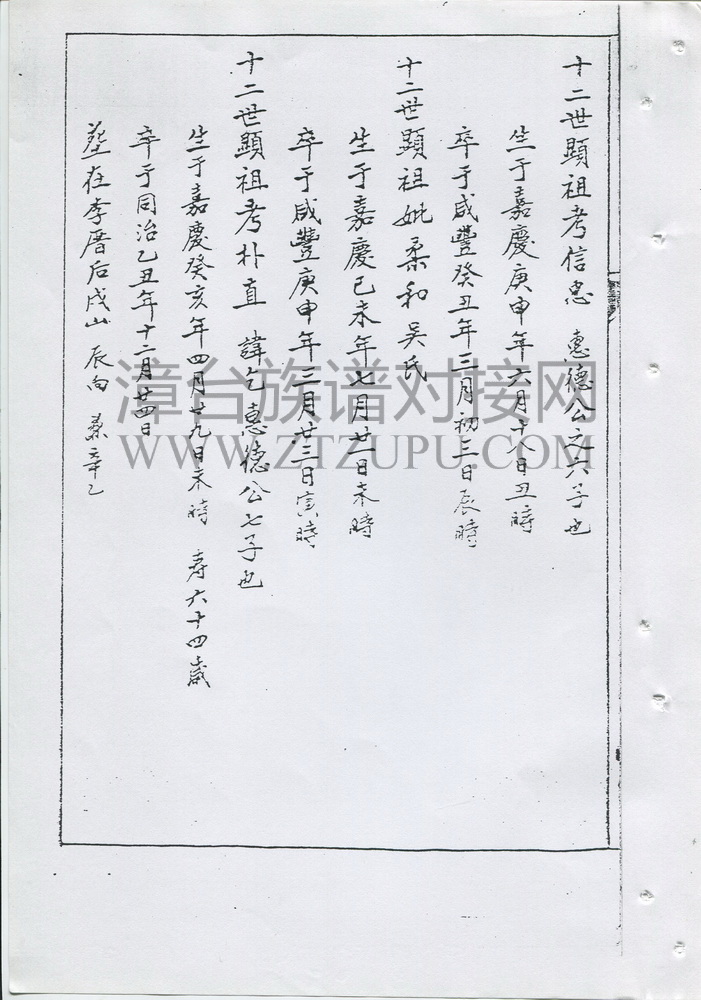 十二世顯祖考信忠 惠德公之六子也
生于嘉慶庚申年六月十八日丑時
卒于咸豐癸丑年三月初三日辰時
十二世顯祖妣柔和吳氏
生于嘉慶己未年七月廿一日未時
卒于咸豐庚申年三月廿三日寅時
十二世顯祖考朴直 諱乞惠德公七子也
生于嘉慶癸亥年四月廿九日未時 壽六十四歲
卒于同治乙丑年十二月廿四日
在李厝后戌山 辰向 辛乙
漳台族谱对接网
WWW.ZTZUPU.COM